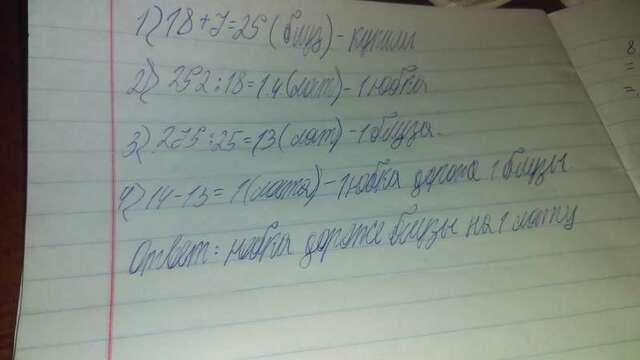 1) 18+7=25 (блуз) - купили
2) 252:18=14 (лат) - 1 юбка
3) 275:25=13 (лат) - 1 блуза.
4) 14-13=1 (лата) - 1 юбка дороже 1 блузы
Ответ: юбка дороже блузы на 1 лату
8
=
=